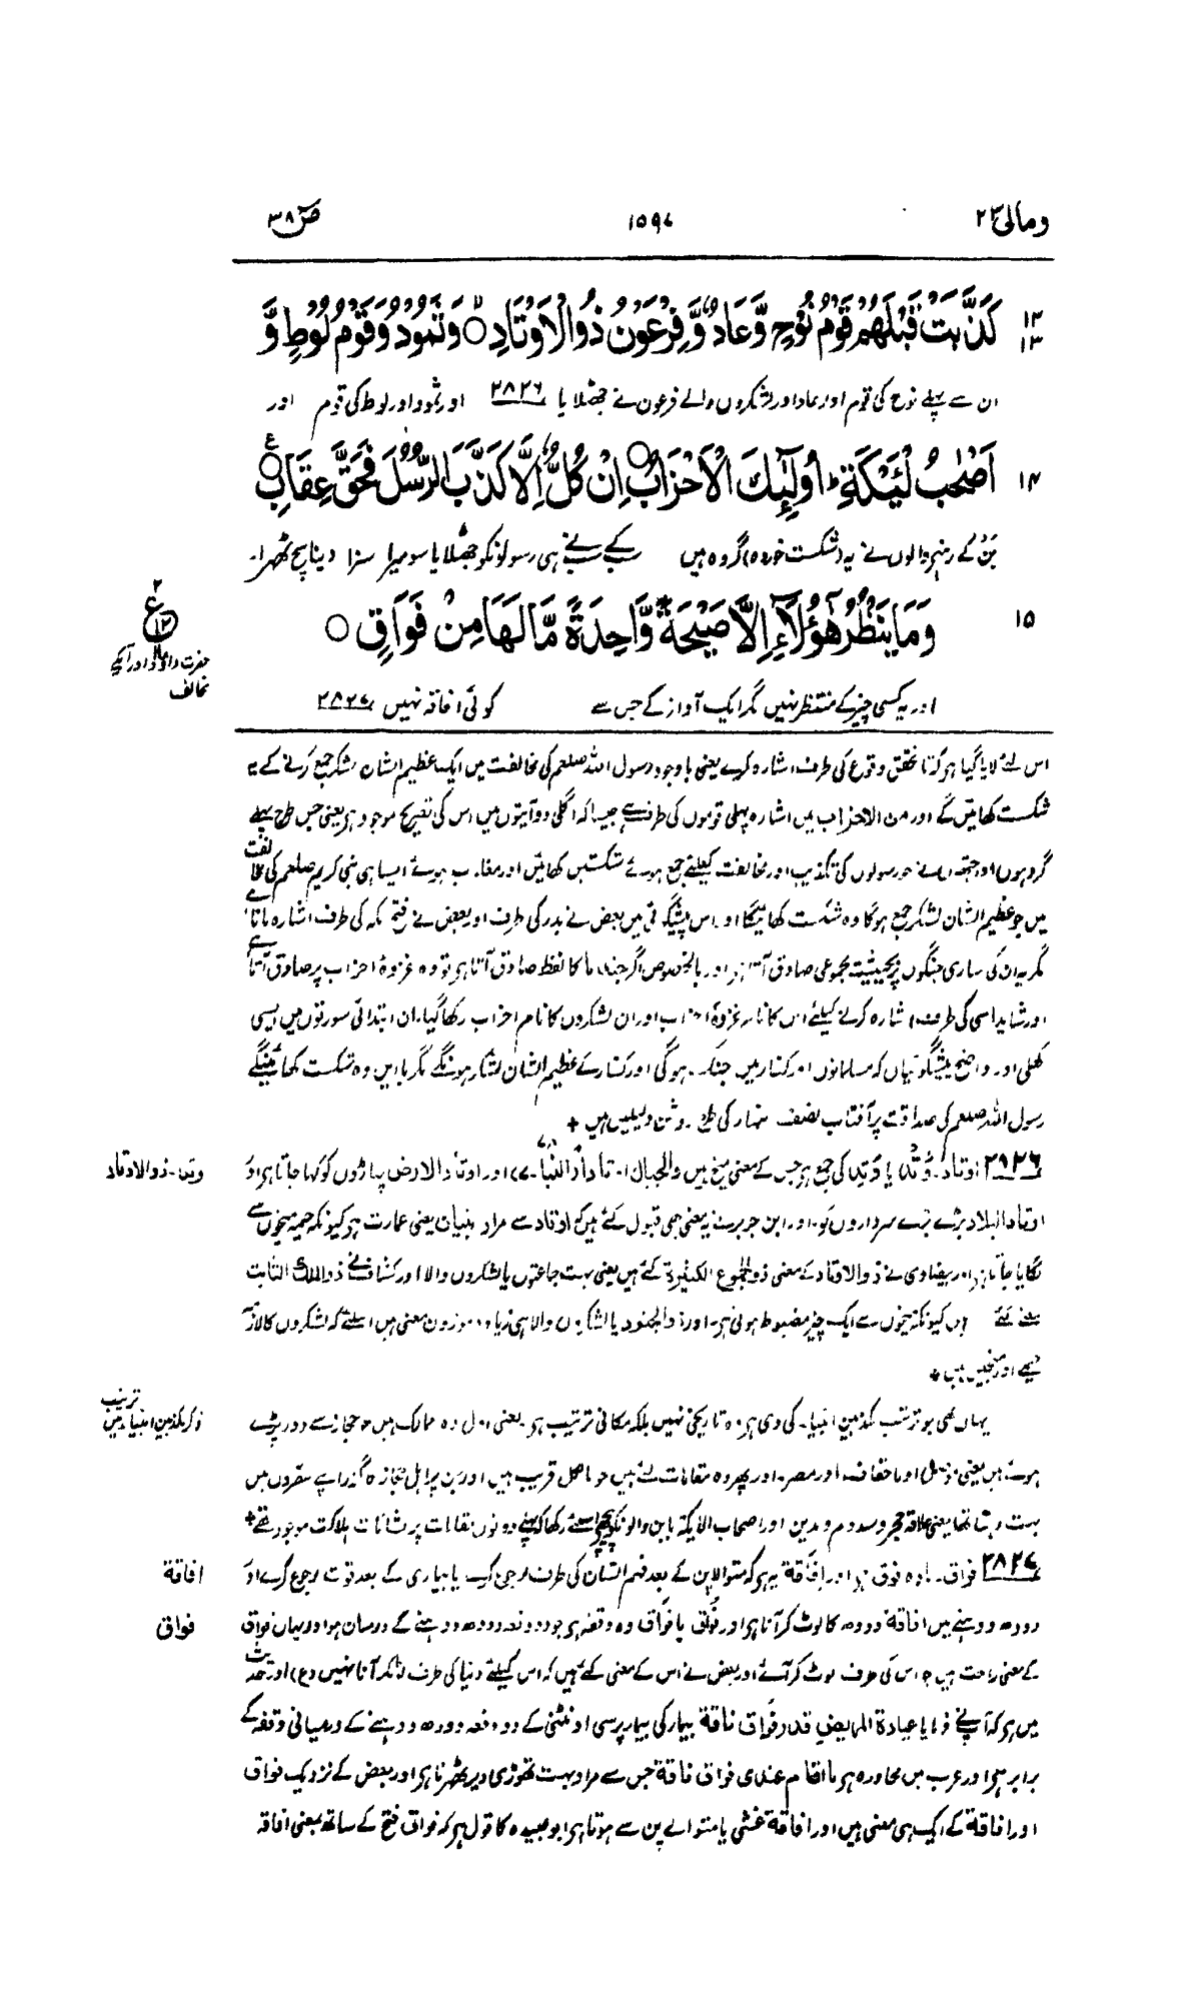 ومالی ۲۳ ۱۵۹۷ ص ۳۸
۱۲ كَذَّبَتْ قَبْلَهُمْ قَوْمُ نُوْحٍ وَّعَادٌ وَّفِرْعَوْنُ ذُو الْاَوْتَادِ ۙ وَثَمُوْدُ وَقَوْمُ لُوْطٍ وَّ
۱۳
ان سے پہلے نوح کی قوم اور عاد اور لشکروں والے فرعون نے جھٹلایا ۲۸۲۶ اور ثمود اور لوط کی قوم اور
۱۴ اَصْحٰبُ لْـَٔيْكَةِ ؕ اُولٰٓئِكَ الْاَحْزَابُ اِنْ كُلٌّ اِلَّا كَذَّبَ الرُّسُلَ فَحَقَّ عِقَابِ ع
بَن کے رہنے والوں نے یہ (شکست خوردہ) گروہ ہیں سب نے ہی رسولوں کو جھٹلایا سو میرا سزا دینا سچ ٹھہرا۔
۱۵ وَمَا يَنْظُرُ هٰٓؤُلَآءِ اِلَّا صَيْحَةً وَّاحِدَةً مَّا لَهَا مِنْ فَوَاقٍ
۲ ع ۱۲
حضرت داؤد اور آپکے
مخالف
اور یہ کسی چیز کے منتظر نہیں مگر ایک آواز کے جس سے کوئی افاقہ نہیں ۲۸۲۷
اس لئے لایا گیا ہو کہ تا تحقق وقوع کی طرف اشارہ کرے یعنی باوجود رسول اللہ صلعم کی مخالفت میں ایک عظیم الشان لشکر جمع کرنے کے یہ
شکست کھائیں گے اور من الاحزاب میں اشارہ پہلی قوموں کی طرف ہے جیسا کہ اگلی دو آیتوں میں اس کی تصریح موجود ہے یعنی جس طرح پہلے
گروہوں اور جتھوں نے جو رسولوں کی تکذیب اور مخالفت کیلئے جمع ہوئے شکستیں کھائیں اور مغلوب ہوئے ایسا ہی نبی کریم صلعم کی مخالفت
میں جو عظیم الشان لشکر جمع ہوگا وہ شکست کھائیگا اور اس پیشگوئی میں بعض نے بدر کی طرف اور بعض نے فتح مکہ کی طرف اشارہ مانا ہے
مگر یہ ان کی ساری جنگوں پر بحیثیت مجموعی صادق آتا ہے اور بالخصوص اگر جند ما کا لفظ صادق آتا ہو تو وہ غزوۂ احزاب پر صادق آتا ہے
اور شاید اسی کی طرف اشارہ کرنے کیلئے اس کا نام غزوۂ احزاب اور ان لشکروں کا نام احزاب رکھا گیا۔ ان ابتدائی سورتوں میں ایسی
کھلی اور واضح پیشگوئیاں کہ مسلمانوں اور کفار میں جنگ ہوگی اور کفار کے عظیم الشان لشکر ہونگے مگر بااین وہ شکست کھائینگے
رسول اللہ صلعم کی صداقت پر آفتاب نصف النہار کی طرح روشن دلیلیں ہیں +
۲۸۲۶ اوتاد۔ وَتَد یا وَتِد کی جمع ہو جس کے معنی میخ ہیں والجبال اوتادا (النبا۔ ۷) اور اوتاد الارض پہاڑوں کو کہا جاتا ہو اور
وتد۔ ذوالاوتاد
اوتاد البلاد بڑے بڑے سرداروں کو۔ اور ابن جریر نے یہ معنی بھی قبول کئے ہیں کہ اوتاد سے مراد بنیان یعنی عمارت ہو کیونکہ خیمہ میخوں سے
لگایا جاتا ہے اور بیضاوی نے ذوالاوتاد کے معنی ذوالجموع الکثیرۃ کئے ہیں یعنی بہت جماعتوں یا لشکروں والا اور کشاف نے ذوالملک الثابت
معنے کئے ہیں کیونکہ میخوں سے ایک چیز مضبوط ہوتی ہے۔ اور ذوالجنود یا لشکروں والا ہی زیادہ موزون معنی ہیں اسلئے کہ لشکروں کا لازمہ
خیمے اور میخیں ہیں +
یہاں بھی جو ترتیب مکذبین انبیاء کی دی ہو وہ تاریخی نہیں بلکہ مکانی ترتیب ہو۔ یعنی اول وہ ممالک ہیں جو حجاز سے دور پڑے
ترتیب
ذکر مکذبین انبیاء میں
ہوئے ہیں یعنی موصل اور احقاف اور مصر۔ اور پھر وہ مقامات لئے ہیں جو بالکل قریب ہیں اور جن پر اہل حجاز کا گذر اپنے سفروں میں
بہت رہتا تھا یعنی علاقہ حجر و سدوم و مدین اور اصحاب الایکۃ یا بن والونکو پیچھے اسلئے رکھا کہ پہلے دونوں مقامات پر نشانات ہلاکت موجود تھے +
۲۸۲۷ فواق۔ مادہ فوق ہے اور افاقۃ یہ ہو کہ متوالاپن کے بعد فہم انسان کی طرف رجوع کرے یا بیماری کے بعد قوت رجوع کرے اور
افاقة
دودھ دوہنے میں افاقۃ دودھ کا لوٹ کر آنا ہو اور فُوَاق یا فَوَاق وہ وقفہ ہو جو دو دفعہ دودھ دوہنے کے درمیان ہو اور یہاں فواق
فواق
کے معنی راحت ہیں جو اس کی طرف لوٹ کر آئے اور بعض نے اس کے معنی کئے ہیں کہ اس کیلئے دنیا کی طرف لوٹ کر آنا نہیں (غ) اور حدیث
میں ہو کہ آپ نے فرمایا عیادة المریض قدر فواق ناقة بیمار کی بیمار پرسی اونٹنی کے دو دفعہ دودھ دوہنے کے درمیانی وقفہ کے
برابر ہو اور عرب میں محاورہ ہو ما اقام عندی فواق ناقة جس سے مراد بہت تھوڑی دیر ٹھہرنا ہو اور بعض کے نزدیک فواق
اور افاقة کے ایک ہی معنی ہیں اور افاقة غشی یا متوالے پن سے ہوتا ہو ابوعبیدہ کا قول ہو کہ فواق فتح کے ساتھ بمعنی افاقہ